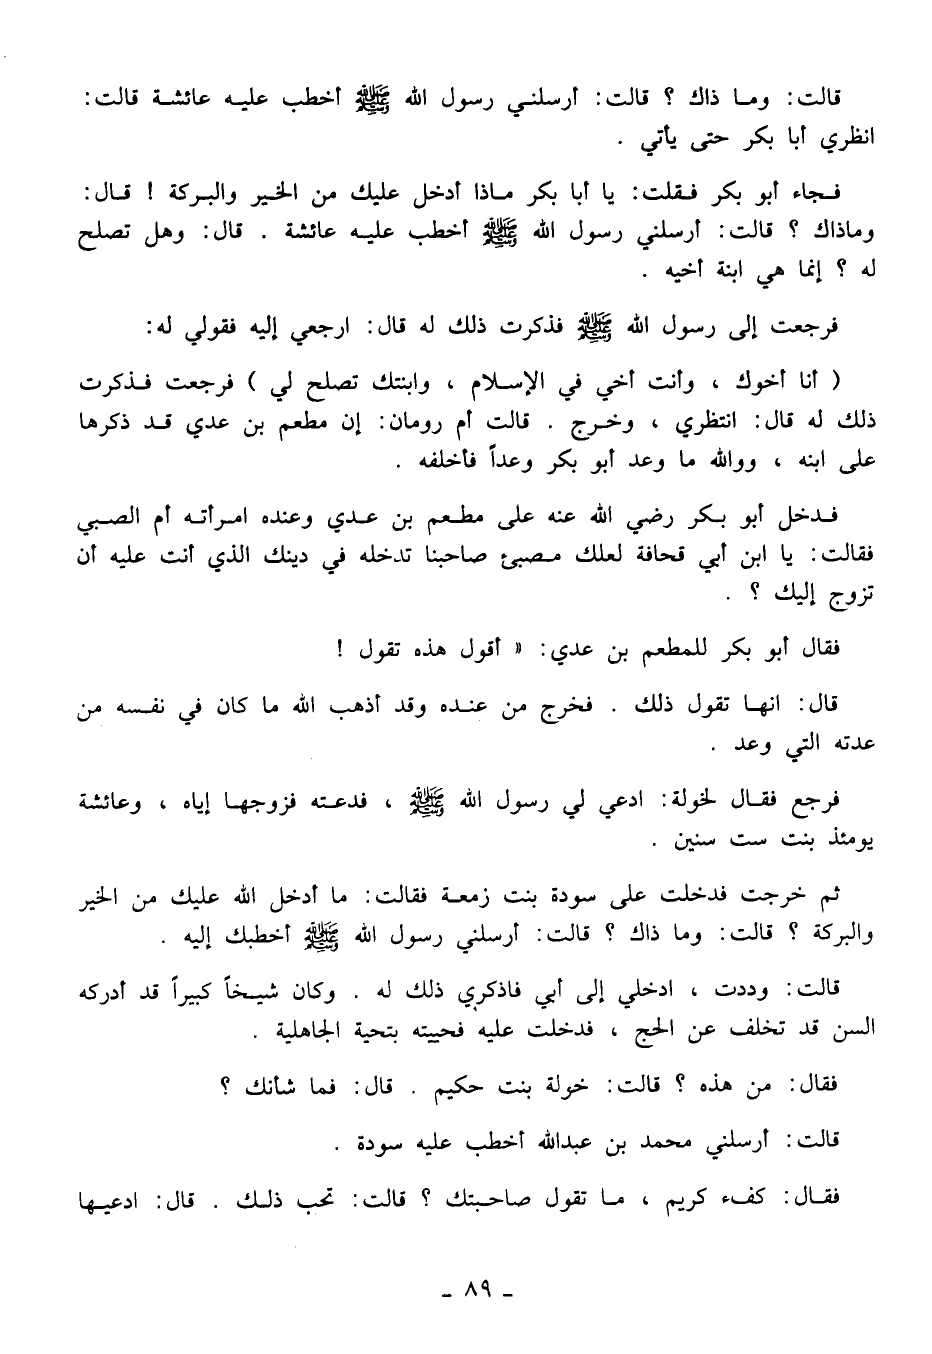 قالت: وما ذاك ؟ قالت: أرسلني رسول الله ﷺ أخطب عليه عائشة قالت:
انظري أبا بكر حتى يأتي .
فجاء أبو بكر فقلت: يا أبا بكر ماذا أدخل عليك من الخير والبركة ! قال:
وماذاك ؟ قالت: أرسلني رسول الله ﷺ أخطب عليه عائشة . قال: وهل تصلح
له ؟ إنما هي ابنة أخيه .
فرجعت إلى رسول الله ﷺ فذكرت ذلك له قال: ارجعي إليه فقولي له:
( أنا أخوك ، وأنت أخي في الإسلام ، وابنتك تصلح لي ) فرجعت فذكرت
ذلك له قال: انتظري ، وخرج . قالت أم رومان: إن مطعم بن عدي قد ذكرها
على ابنه ، ووالله ما وعد أبو بكر وعداً فأخلفه .
فدخل أبو بكر رضي الله عنه على مطعم بن عدي وعنده امرأته أم الصبي
فقالت: يا ابن أبي قحافة لعلك مصبئ صاحبنا تدخله في دينك الذي أنت عليه أن
تزوج إليك ؟ .
فقال أبو بكر للمطعم بن عدي: « أقول هذه تقول !
قال: انها تقول ذلك . فخرج من عنده وقد أذهب الله ما كان في نفسه من
عدته التي وعد .
فرجع فقال لخولة: ادعي لي رسول الله ﷺ ، فدعته فزوجها إياه ، وعائشة
يومئذ بنت ست سنين .
ثم خرجت فدخلت على سودة بنت زمعة فقالت: ما أدخل الله عليك من الخير
والبركة ؟ قالت: وما ذاك ؟ قالت: أرسلني رسول الله ﷺ أخطبك إليه .
قالت: وددت ، ادخلي إلى أبي فاذكري ذلك له . وكان شيخاً كبيراً قد أدركه
السن قد تخلف عن الحج ، فدخلت عليه فحييته بتحية الجاهلية .
فقال: من هذه ؟ قالت: خولة بنت حكيم . قال: فما شأنك ؟
قالت: أرسلني محمد بن عبدالله أخطب عليه سودة .
فقال: كفء كريم ، ما تقول صاحبتك ؟ قالت: تحب ذلك . قال: ادعيها
- ٨٩ -